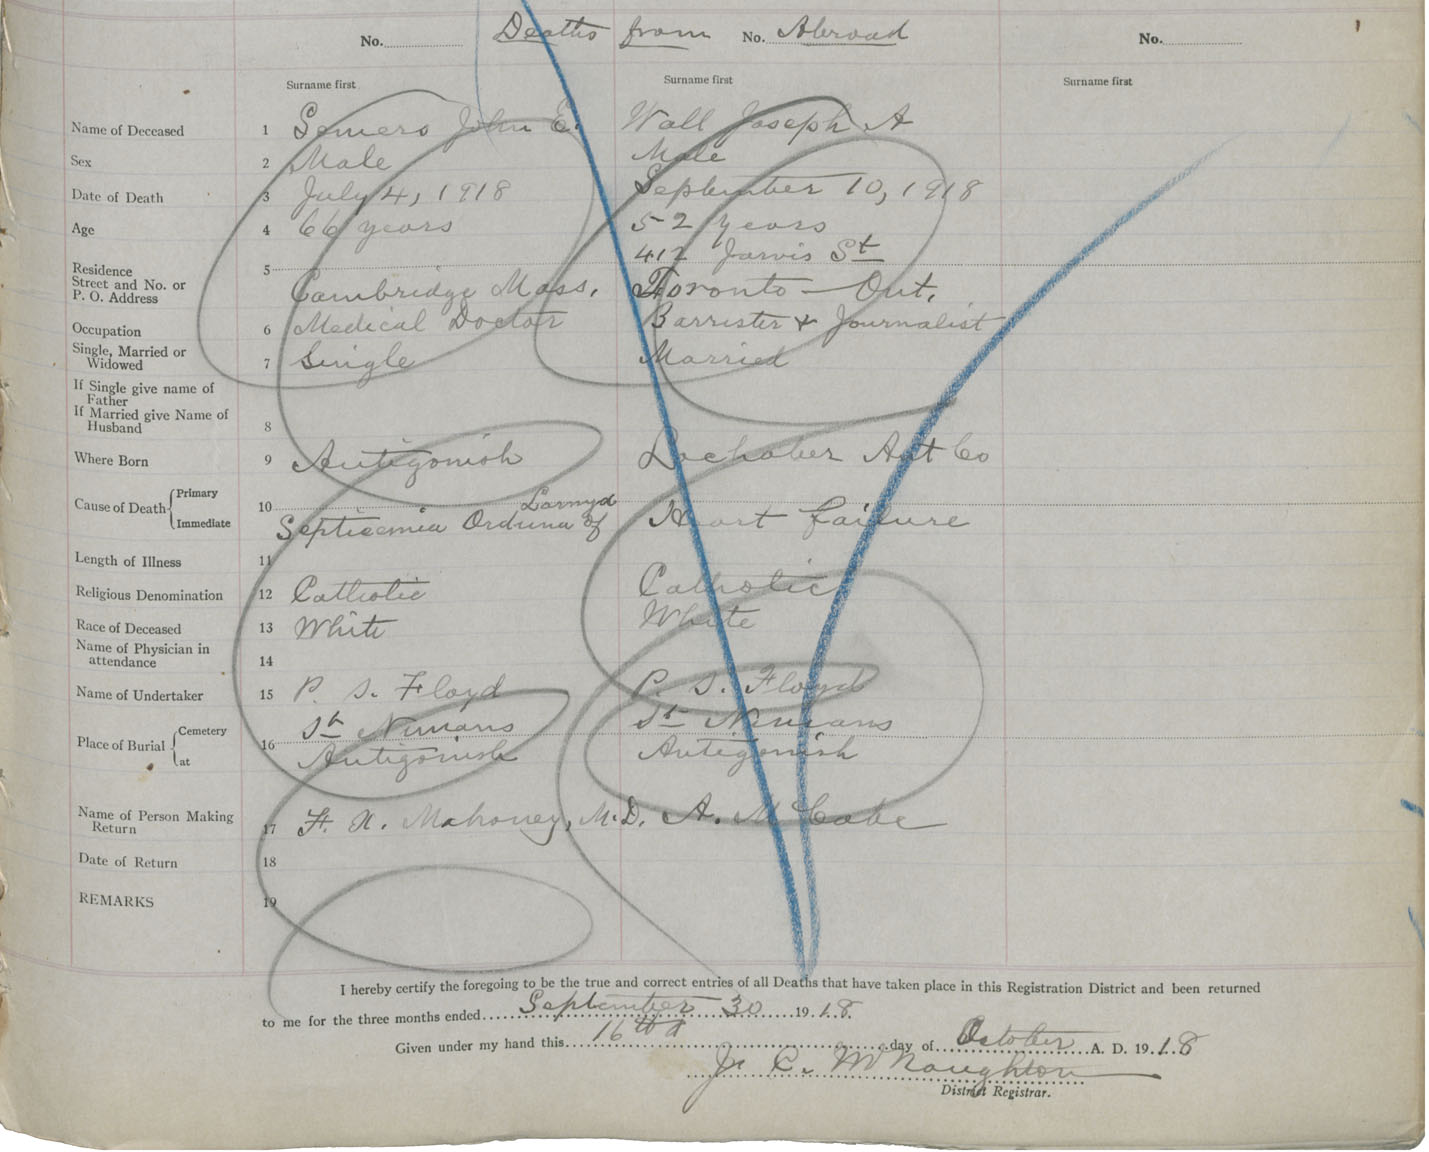 No. Deaths from No. Abroad No.
Surname first Surname first Surname first
Name of Deceased 1 Somers John E. Wall Joseph A
Sex 2 Male Male
Date of Death 3 July 4, 1918 September 10, 1918
Age 4 66 years 52 years
412 Jarvis St
Residence 5
Street and No. or
P. O. Address Cambridge Mass. Toronto - Ont.
Occupation 6 Medical Doctor Barrister & Journalist
Single, Married or
Widowed 7 Single Married
If Single give name of
Father
If Married give Name of
Husband 8
Where Born 9 Antigonish Lochaber Ant Co
Cause of Death Primary 10
Immediate Septicemia of Heart failure
Length of Illness 11
Religious Denomination 12 Catholic Catholic
Race of Deceased 13 White White
Name of Physician in
attendance 14
Name of Undertaker 15 P. S. Floyd P. S. Floyd
Place of Burial Cemetery St Ninians St Ninians
at 16 Antigonish Antigonish
Name of Person Making
Return 17 Mahoney, M.D. A. McCabe
Date of Return 18
REMARKS 19
I hereby certify the foregoing to be the true and correct entries of all Deaths that have taken place in this Registration District and been returned
to me for the three months ended September 30 1918.
Given under my hand this 16th day of October A. D. 1918
C. McNaughton
District Registrar.